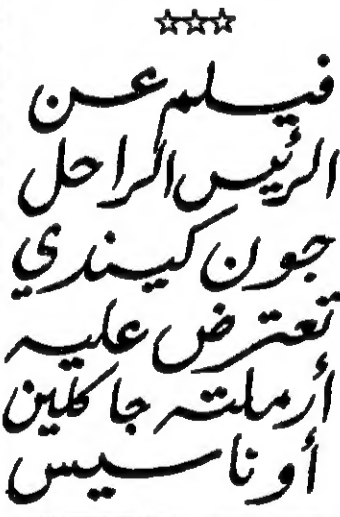 ☆☆☆
فيلم عن
الرئيس الراحل
جون كيندي
تعترض عليه
أرملته جاكلين
أوناسيس